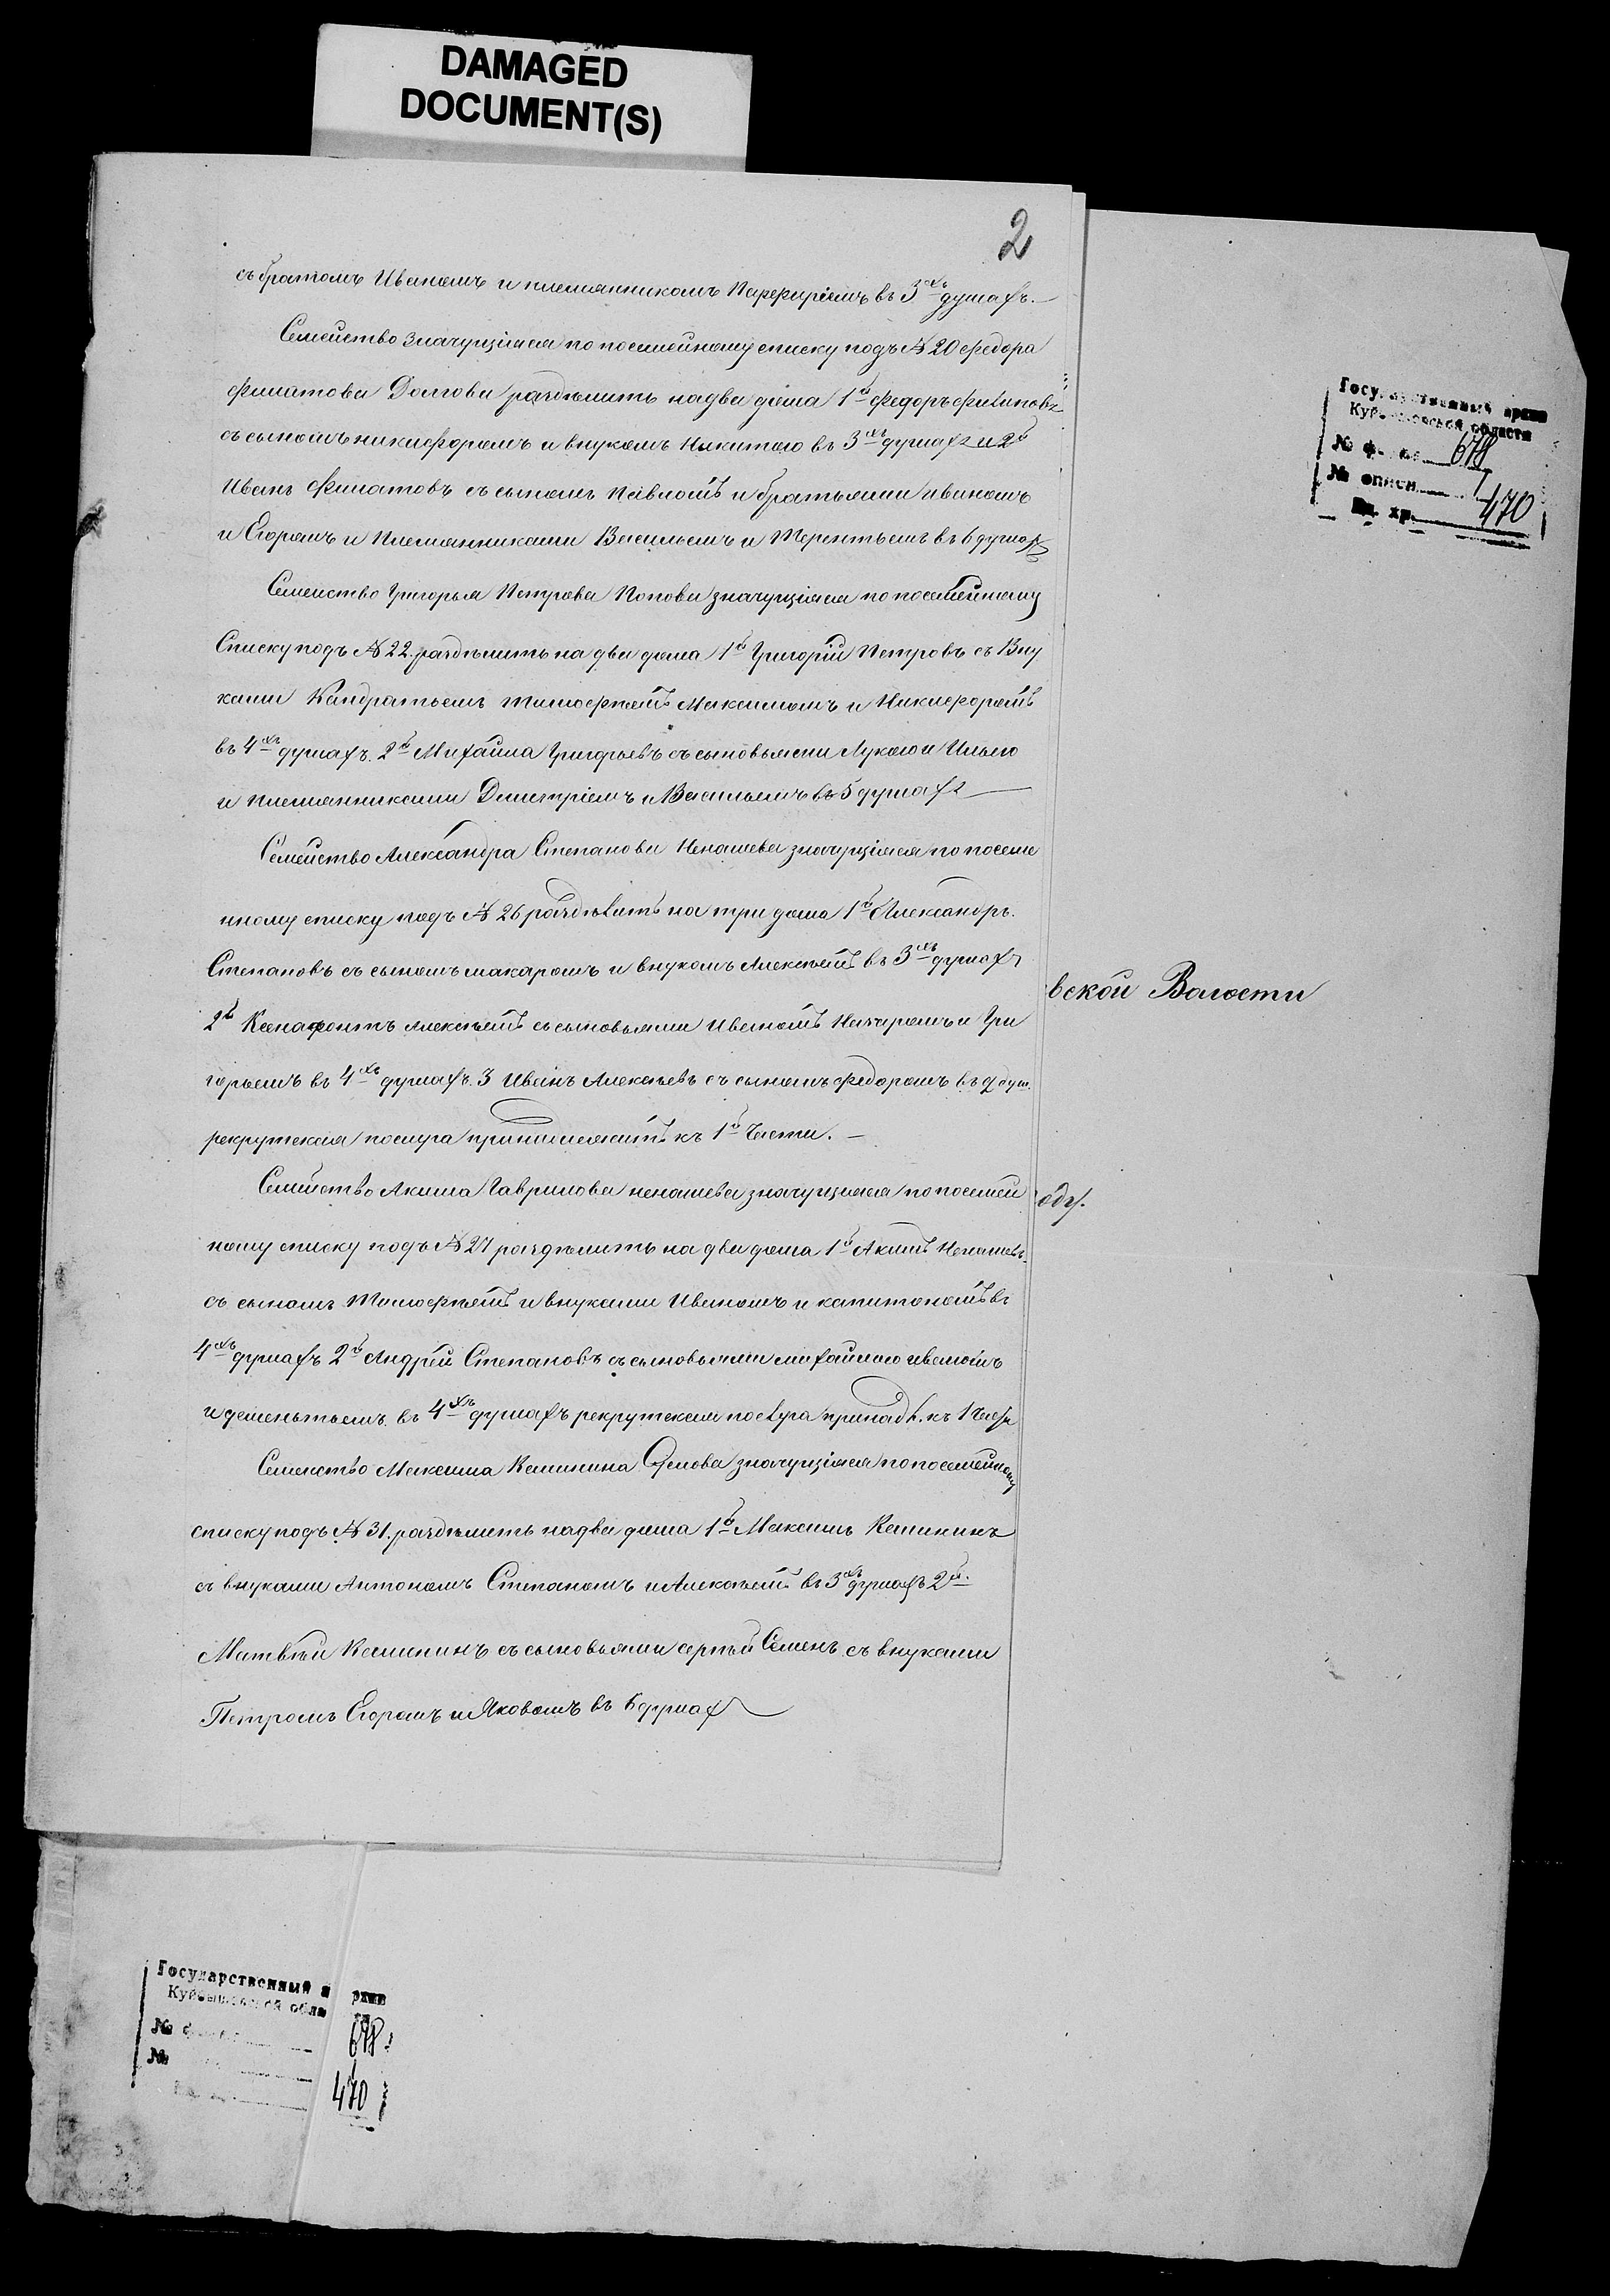 DAMAGED
DOCUMENT(S)
2
съ братомъ Иваномъ и племянникомъ Парфиріемъ въ 3хъ душахъ. —
Семейство значущіяся по посемейному списку подъ № 20 Федора
Филатова Долгова раздѣлить на два дома 1й Федоръ Филиповъ
съ сыномъ никифоромъ и внукомъ Никитою въ 3хъ душахъ и 2й
Иванъ Филатовъ съ сыномъ Павломъ и братьями иваномъ
и Егоромъ и Племянниками Васильемъ и Терентьемъ въ 6 душах
Семейство Григорья Петрова Попова значущіяся по посемейному
Списку подъ № 22. раздѣлить на два дома 1й Григорій Петровъ съ Вну
ками Кандратьемъ тимофѣемъ Максимомъ и Никифоромъ
въ 4хъ душахъ. 2й Михайла Григорьевъ съ сыновьями Лукою и Ильею
и племянниками Дмитріемъ и Васильемъ въ 5 душахъ —
Семейство Александра Степанова Ненашева значущіяся по посеме
нному списку подъ № 26 раздѣлить на три дома 1й Александръ.
Степановъ съ сыномъ макаромъ и внукомъ Алексѣемъ въ 3хъ душахъ
2й Ксенафонтъ Алексѣевъ съ сыновьями Иваномъ Назаромъ и Гри
горьемъ въ 4хъ душахъ. 3 Иванъ Алексѣевъ съ сыномъ федоромъ въ 2 душ.
рекрутская послуга принадлежитъ къ 1й Части. —
Семейство Акима Гаврилова ненашева значущіяся по посемей
ному списку подъ № 27 раздѣлить на два дома 1й Акимъ Ненашевъ.
съ сыномъ Тимофѣемъ и внуками Иваномъ и капитономъ въ
4хъ душахъ 2й Андрей Степановъ съ сыновьями михайлою иваномъ
и дементьемъ въ 4хъ душахъ рекрутская послуга принадл. къ 1 Части
Семейство Максима Калинина значущіяся по посемейному
списку подъ № 31. раздѣлить на два дома 1й Максимъ Калининъ
съ внуками Антономъ Степаномъ и Алексѣемъ въ 3хъ душахъ 2й.
Матвѣй Калининъ съ сыновьями сергѣй Семенъ съ внуками
Петромъ Егоромъ и Яковомъ въ 6 душах
вской Волости
оду.
Государственный архив
Куйбышевской области
№ фонда 678
№ описи 1
Ед. хр. 470
Государственный архив
Куйбышевской обла
№ 678
№ 1
470